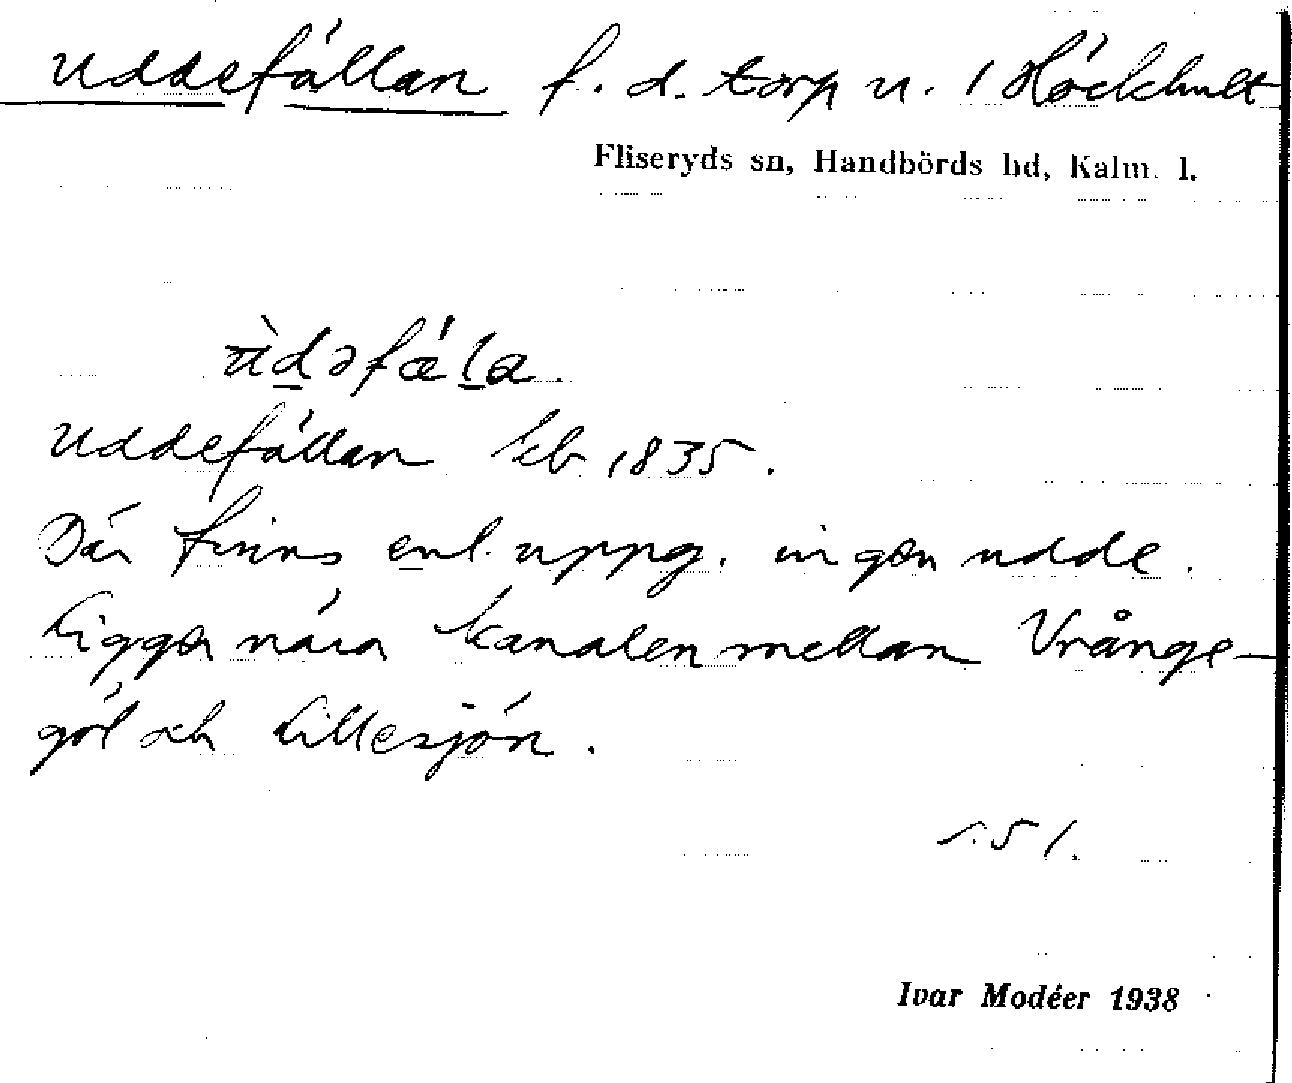 Uddefällan f. d. torp u. 1 Höckhult
Fliseryds sn, Handbörds hd, Kalm. l.
ùdəfǽla.
Uddefällan kb 1835.
Där finns enl. uppg. ingen udde.
Ligger nära kanalen mellan Vrånge-
göl och Lillesjön.
s. 51.
Ivar Modéer 1938